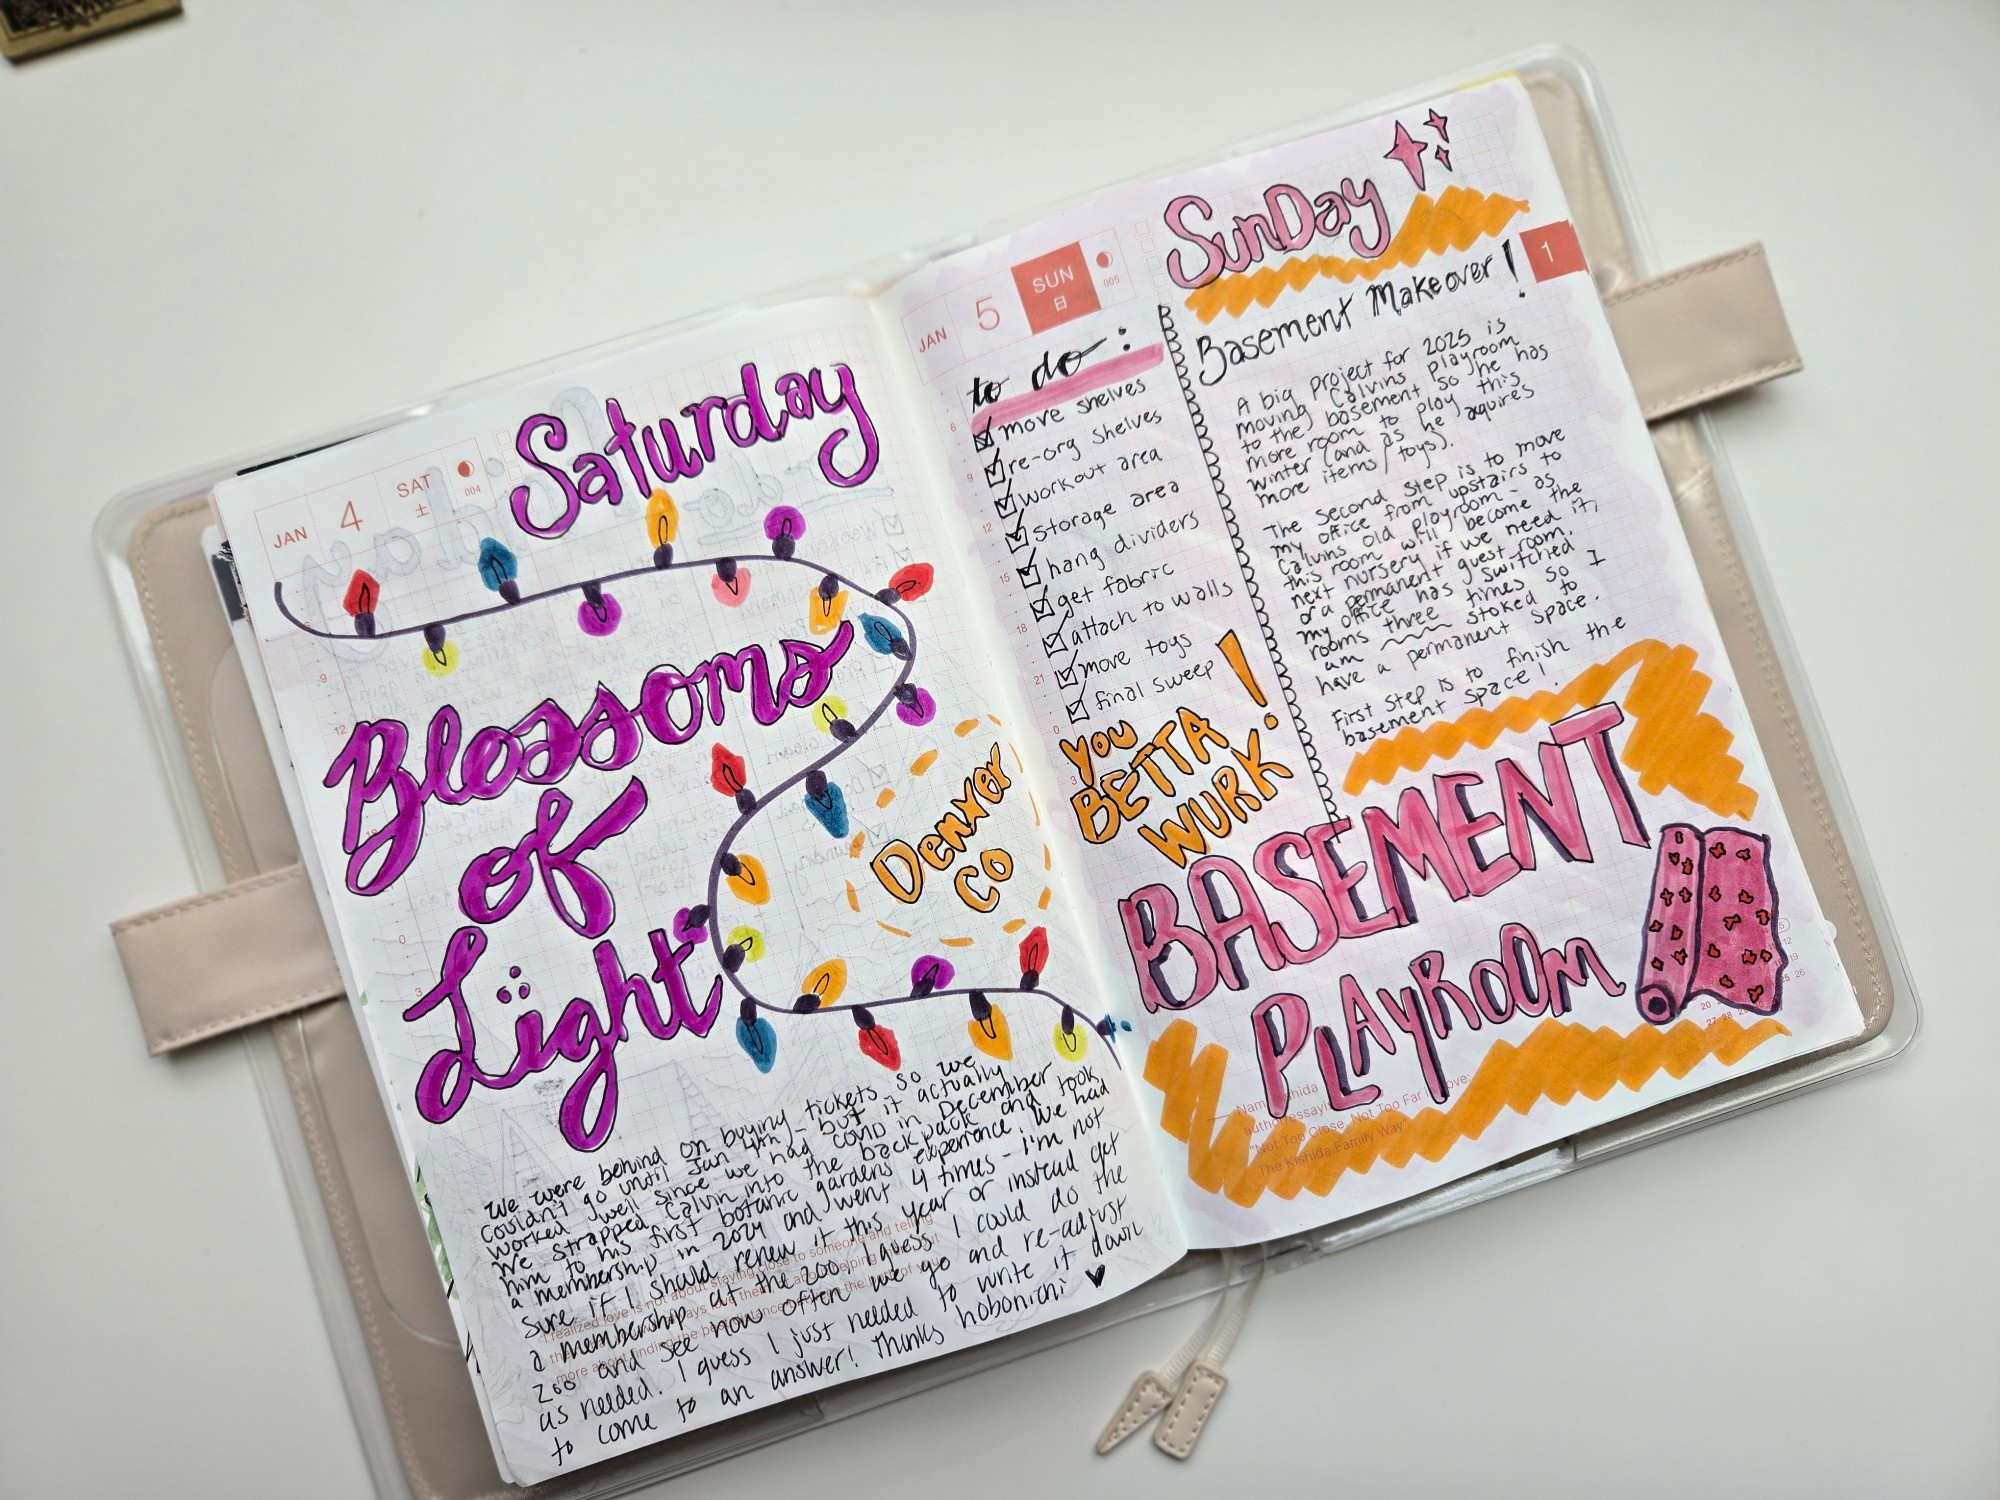 JAN 4 SAT 土 004
Saturday
Blossoms
of
Light
Denver
CO
We were behind on buying tickets so we
couldn't go until Jan 4th - but it actually
worked well since we had covid in December
We strapped Calvin into the backpack and took
him to his first botanic gardens experience. We had
a membership in 2024 and went 4 times - I'm not
sure if I should renew it this year or instead get
a membership at the zoo. I guess I could do the
zoo and see how often we go and re-adjust
as needed. I guess I just needed to write it down
to come to an answer! Thanks hobonichi ♥
JAN 5 SUN 日 005
to do:
move shelves
re-org shelves
workout area
storage area
hang dividers
get fabric
attach to walls
move toys
final sweep
You
BETTA
WURK!
SunDay
1
Basement Makeover!
A big project for 2025 is
moving Calvins playroom
to the basement so he has
more room to play this
winter (and as he aquires
more items/toys).
The second step is to move
my office from upstairs to
Calvins old playroom - as
this room will become the
next nursery if we need it,
or a permanent guest room.
my office has switched
rooms three times so I
am stoked to
have a permanent space.
First step is to finish the
basement space!
BASEMENT
PLAYROOM
"Not Too Close, Not Too Far
The Kishida Family Way"